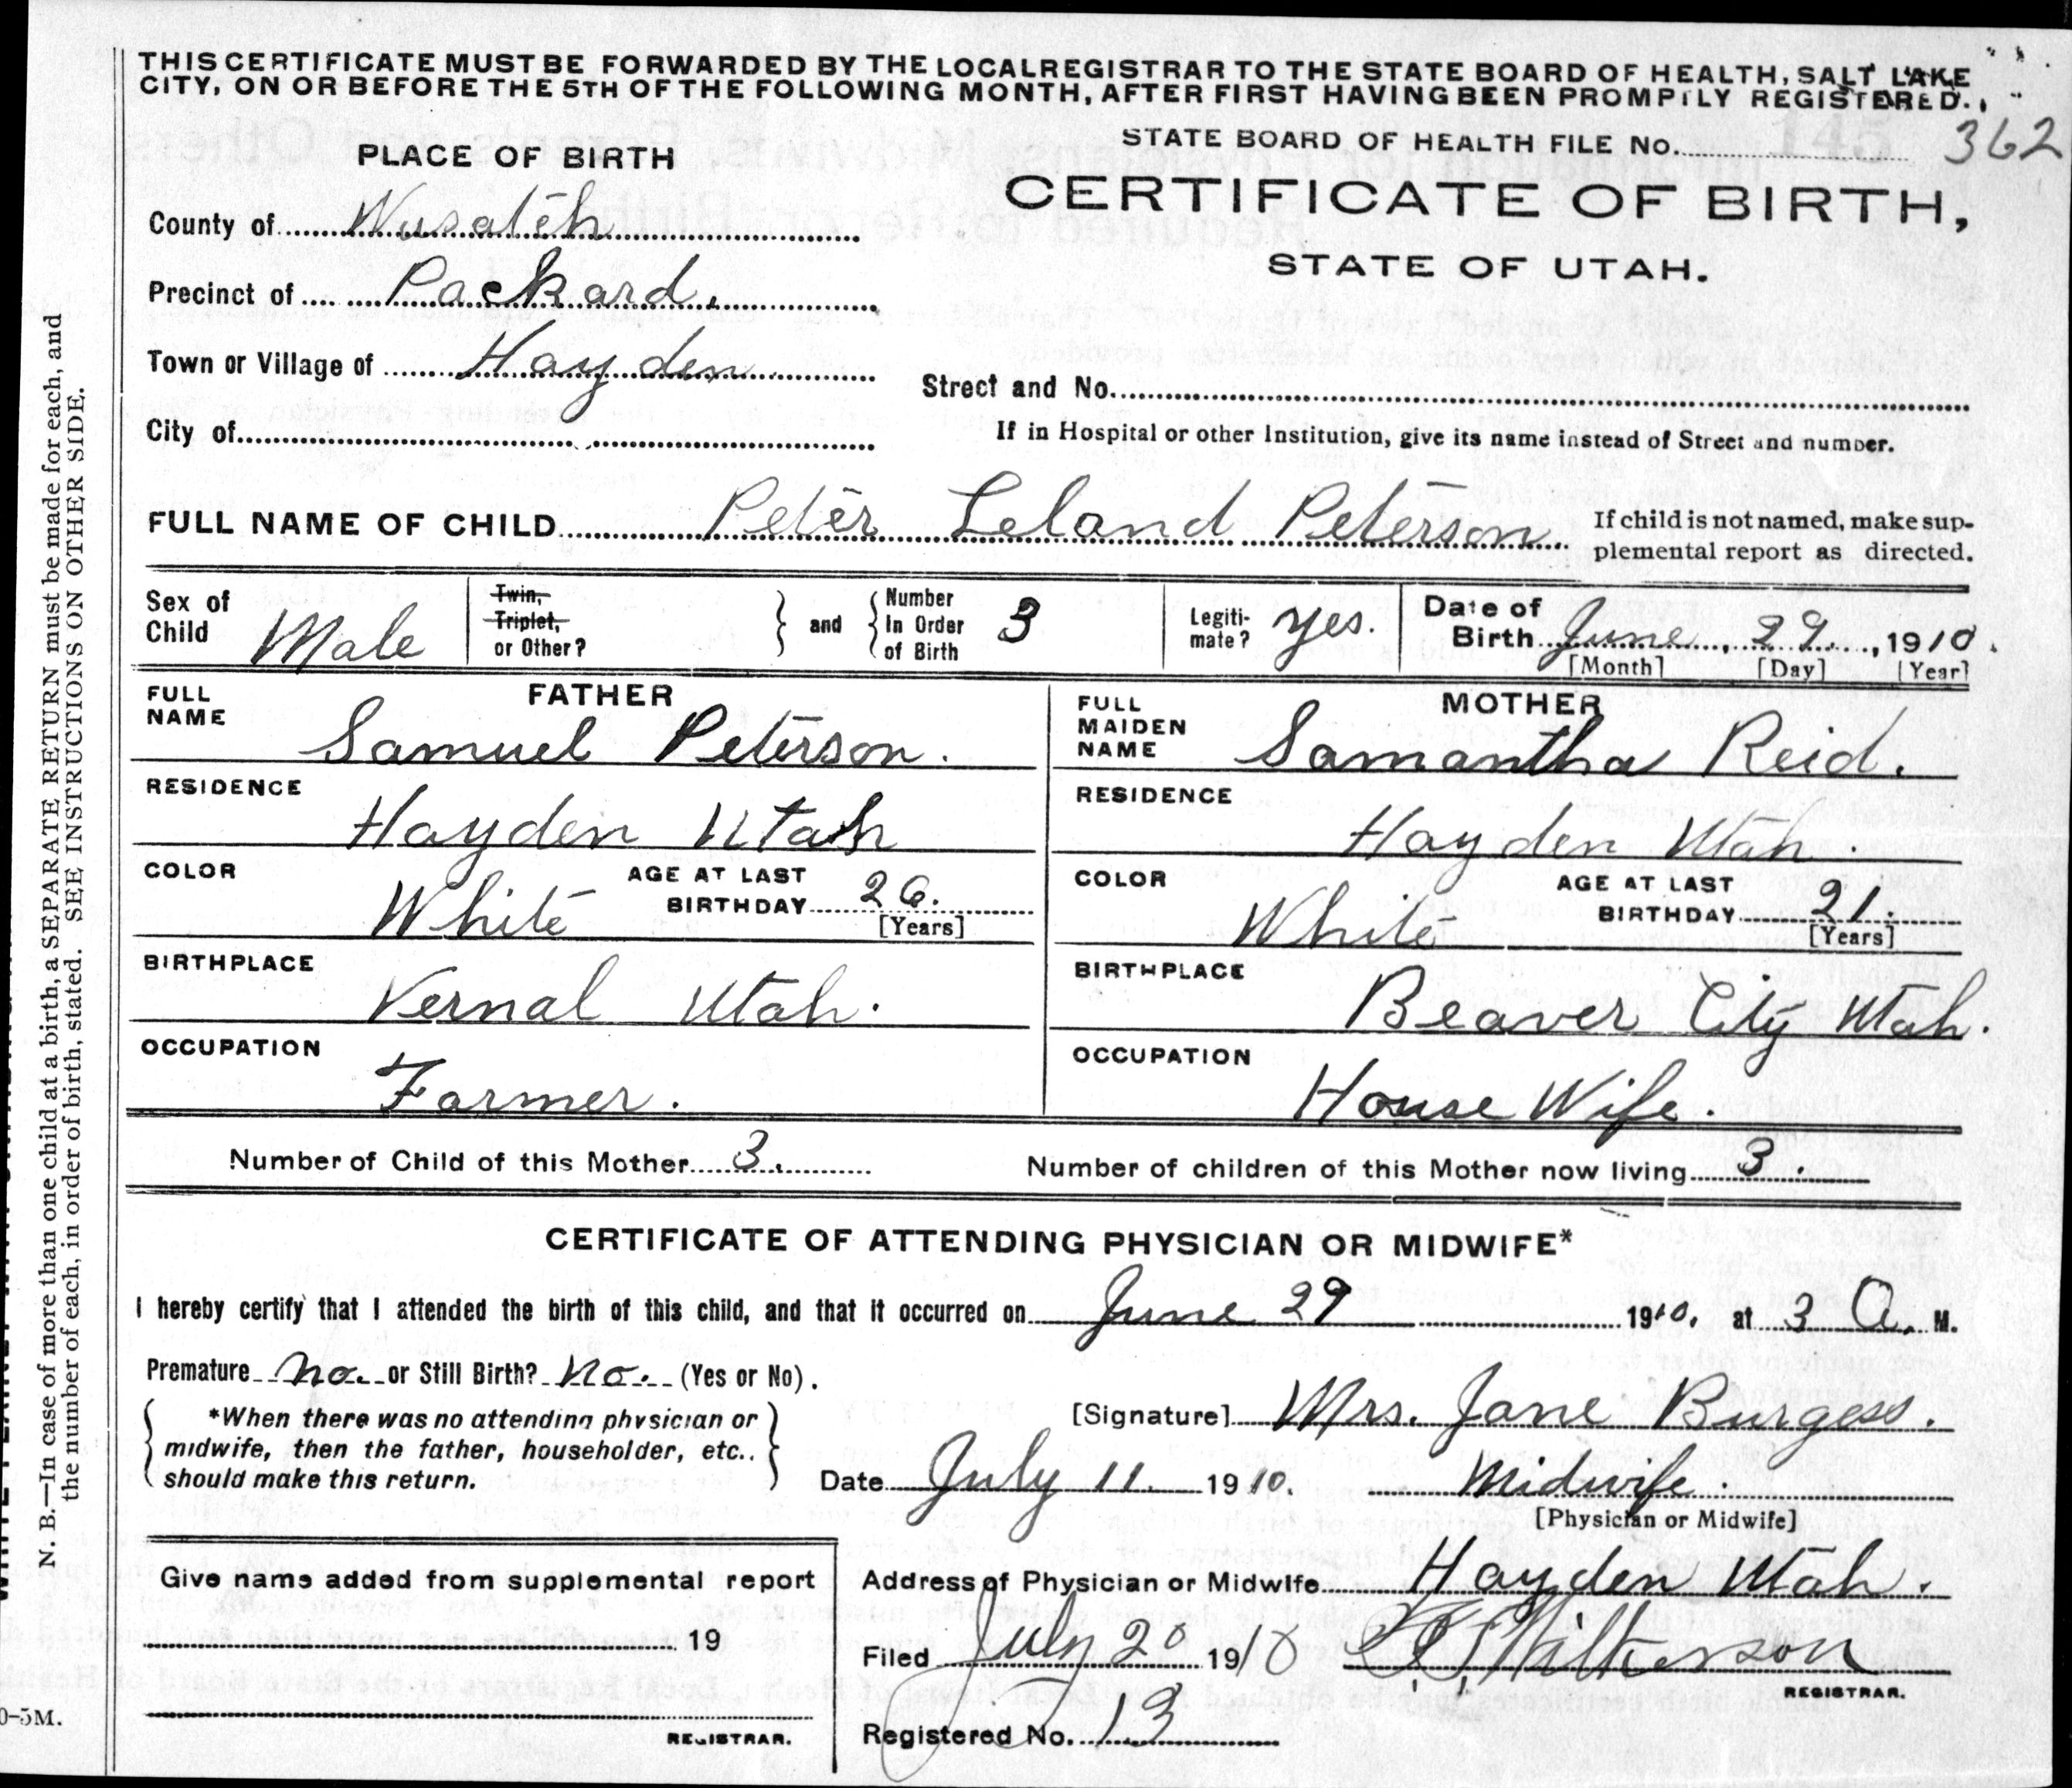 THIS CERTIFICATE MUST BE FORWARDED BY THE LOCALREGISTRAR TO THE STATE BOARD OF HEALTH, SALT LAKE
CITY, ON OR BEFORE THE 5TH OF THE FOLLOWING MONTH, AFTER FIRST HAVING BEEN PROMPTLY REGISTERED.
STATE BOARD OF HEALTH FILE No. 145 362
PLACE OF BIRTH
CERTIFICATE OF BIRTH,
STATE OF UTAH.
County of Wasatch
Precinct of Packard.
Town or Village of Hayden.
Street and No.
City of
If in Hospital or other Institution, give its name instead of Street and number.
FULL NAME OF CHILD Peter Leland Peterson.
If child is not named, make sup-
plemental report as directed.
Sex of Child Male
Twin,
Triplet,
or Other?
and
Number
In Order
of Birth 3
Legiti-
mate? Yes.
Date of
Birth June, 29., 1910.
[Month] [Day] [Year]
FATHER
FULL
NAME Samuel Peterson.
RESIDENCE
Hayden Utah
COLOR White
AGE AT LAST
BIRTHDAY 26.
[Years]
BIRTHPLACE
Vernal Utah.
OCCUPATION
Farmer.
MOTHER
FULL
MAIDEN
NAME Samantha Reid.
RESIDENCE
Hayden Utah.
COLOR White
AGE AT LAST
BIRTHDAY 21.
[Years]
BIRTHPLACE
Beaver City Utah.
OCCUPATION
House Wife.
Number of Child of this Mother 3.
Number of children of this Mother now living 3.
CERTIFICATE OF ATTENDING PHYSICIAN OR MIDWIFE*
I hereby certify that I attended the birth of this child, and that it occurred on June 29 1910, at 3 A. M.
Premature no. or Still Birth? no. (Yes or No).
*When there was no attending physician or
midwife, then the father, householder, etc.,
should make this return.
[Signature] Mrs. Jane Burgess.
Date July 11. 1910.
Midwife.
[Physician or Midwife]
Give name added from supplemental report
19
REGISTRAR.
Address of Physician or Midwife Hayden Utah.
Filed July 20 1910
Wilkerson
REGISTRAR.
Registered No. 13
N. B.—In case of more than one child at a birth, a SEPARATE RETURN must be made for each, and
the number of each, in order of birth, stated. SEE INSTRUCTIONS ON OTHER SIDE.
0-5M.